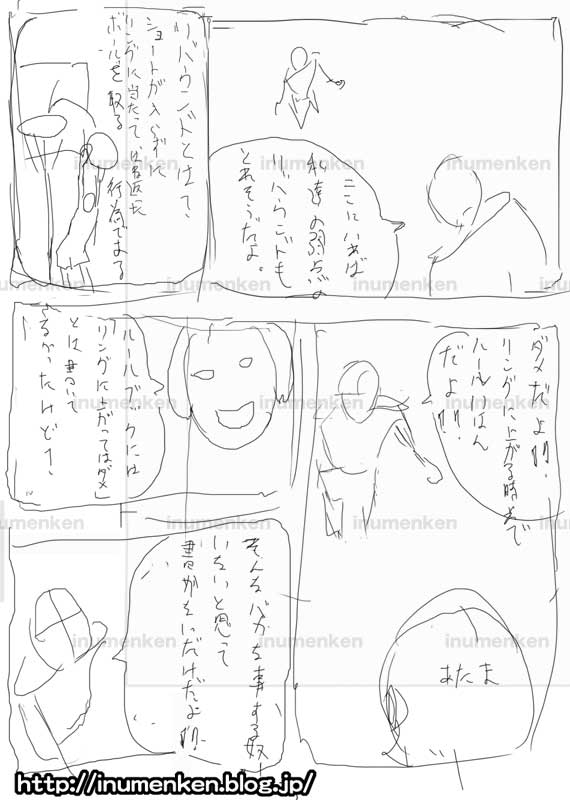 リバウンドとは、
シュートが入らずに
リングに当たってはね返った
ボールを取る
行為である
ここにいれば
私達の弱点の
リバウンドも
とれそうだよ。
ダメだよ!!
リングに上がる時点で
ルールいはん
だよ!!
ルールブックには
「リングに上がってはダメ」
とは書いて
なかったけど?
あたま
そんなバカな事する奴
いないと思って
書かないだけだよ!!
inumenken
inumenken
inumenken
inumenken
inumenken
inumenken
inumenken
inumenken
inumenken
inumenken
inumenken
inumenken
inumenken
inumenken
http://inumenken.blog.jp/